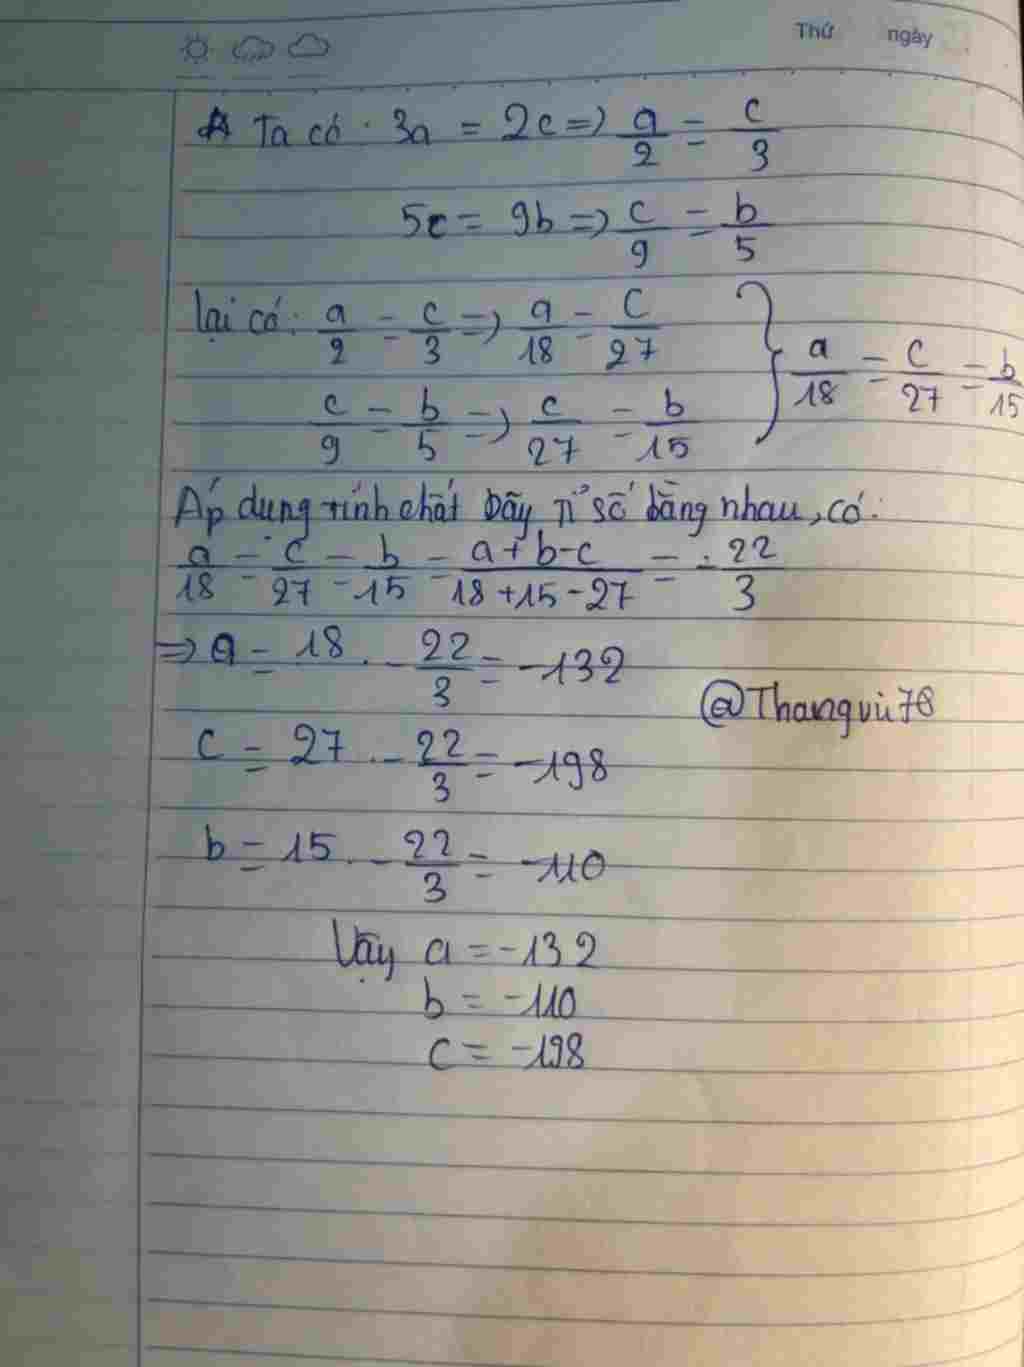 Thứ ngày
Ta có: 3a = 2c => a/2 = c/3
5c = 9b => c/9 = b/5
lại có: a/2 = c/3 => a/18 = c/27
c/9 = b/5 => c/27 = b/15
} a/18 = c/27 = b/15
Áp dụng tính chất dãy tỉ số bằng nhau, có:
a/18 = c/27 = b/15 = (a+b-c)/(18+15-27) = -22/3
=> a = 18 . -22/3 = -132
@Thangvu78
c = 27 . -22/3 = -198
b = 15 . -22/3 = -110
Vậy a = -132
b = -110
c = -198